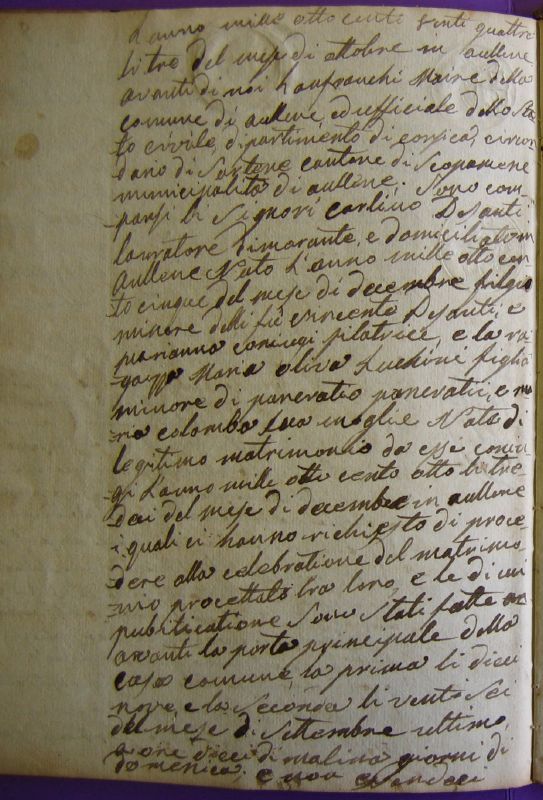 L'anno mille otto cento venti quattro
li tre del mese di ottobre in aullene
avanti di noi Lanfranchi Maire della
comune di aullene ed ufficiale dello Sta-
to civile, dipartimento di corsica, circon-
dano di Sartene cantone di Scopamene
municipalità di aullene, Sono com-
parsi li Signori carlino DeSanti
lauratore dimorante, e domiciliato in
Aullene Nato L'anno mille otto cen-
to cinque del mese di decembre filgio
minore delli fù vincento DeSanti, e
marianna coniugi filatrice, e la ra-
gazza Maria oliva Luchini figlia
minore di pancratio pancratii, e ma-
ria colomba sua moglie Nata di
legitimo matrimonio da essi coniu-
gi L'anno mille otto cento otto li tre-
deci del mese di decembre in aullene
i quali ci hanno richiesto di proce-
dere alla celebratione del matrimo-
nio progettato tra loro, e le di cui
publicatione Sono Stati fatte
avanti la porta principale della
casa comune la prima li dieci
nove, e la Seconda li venti Sei
del mese di Settembre ultimo,
a ore dieci di matina giorni di
domenica. e non essendoci